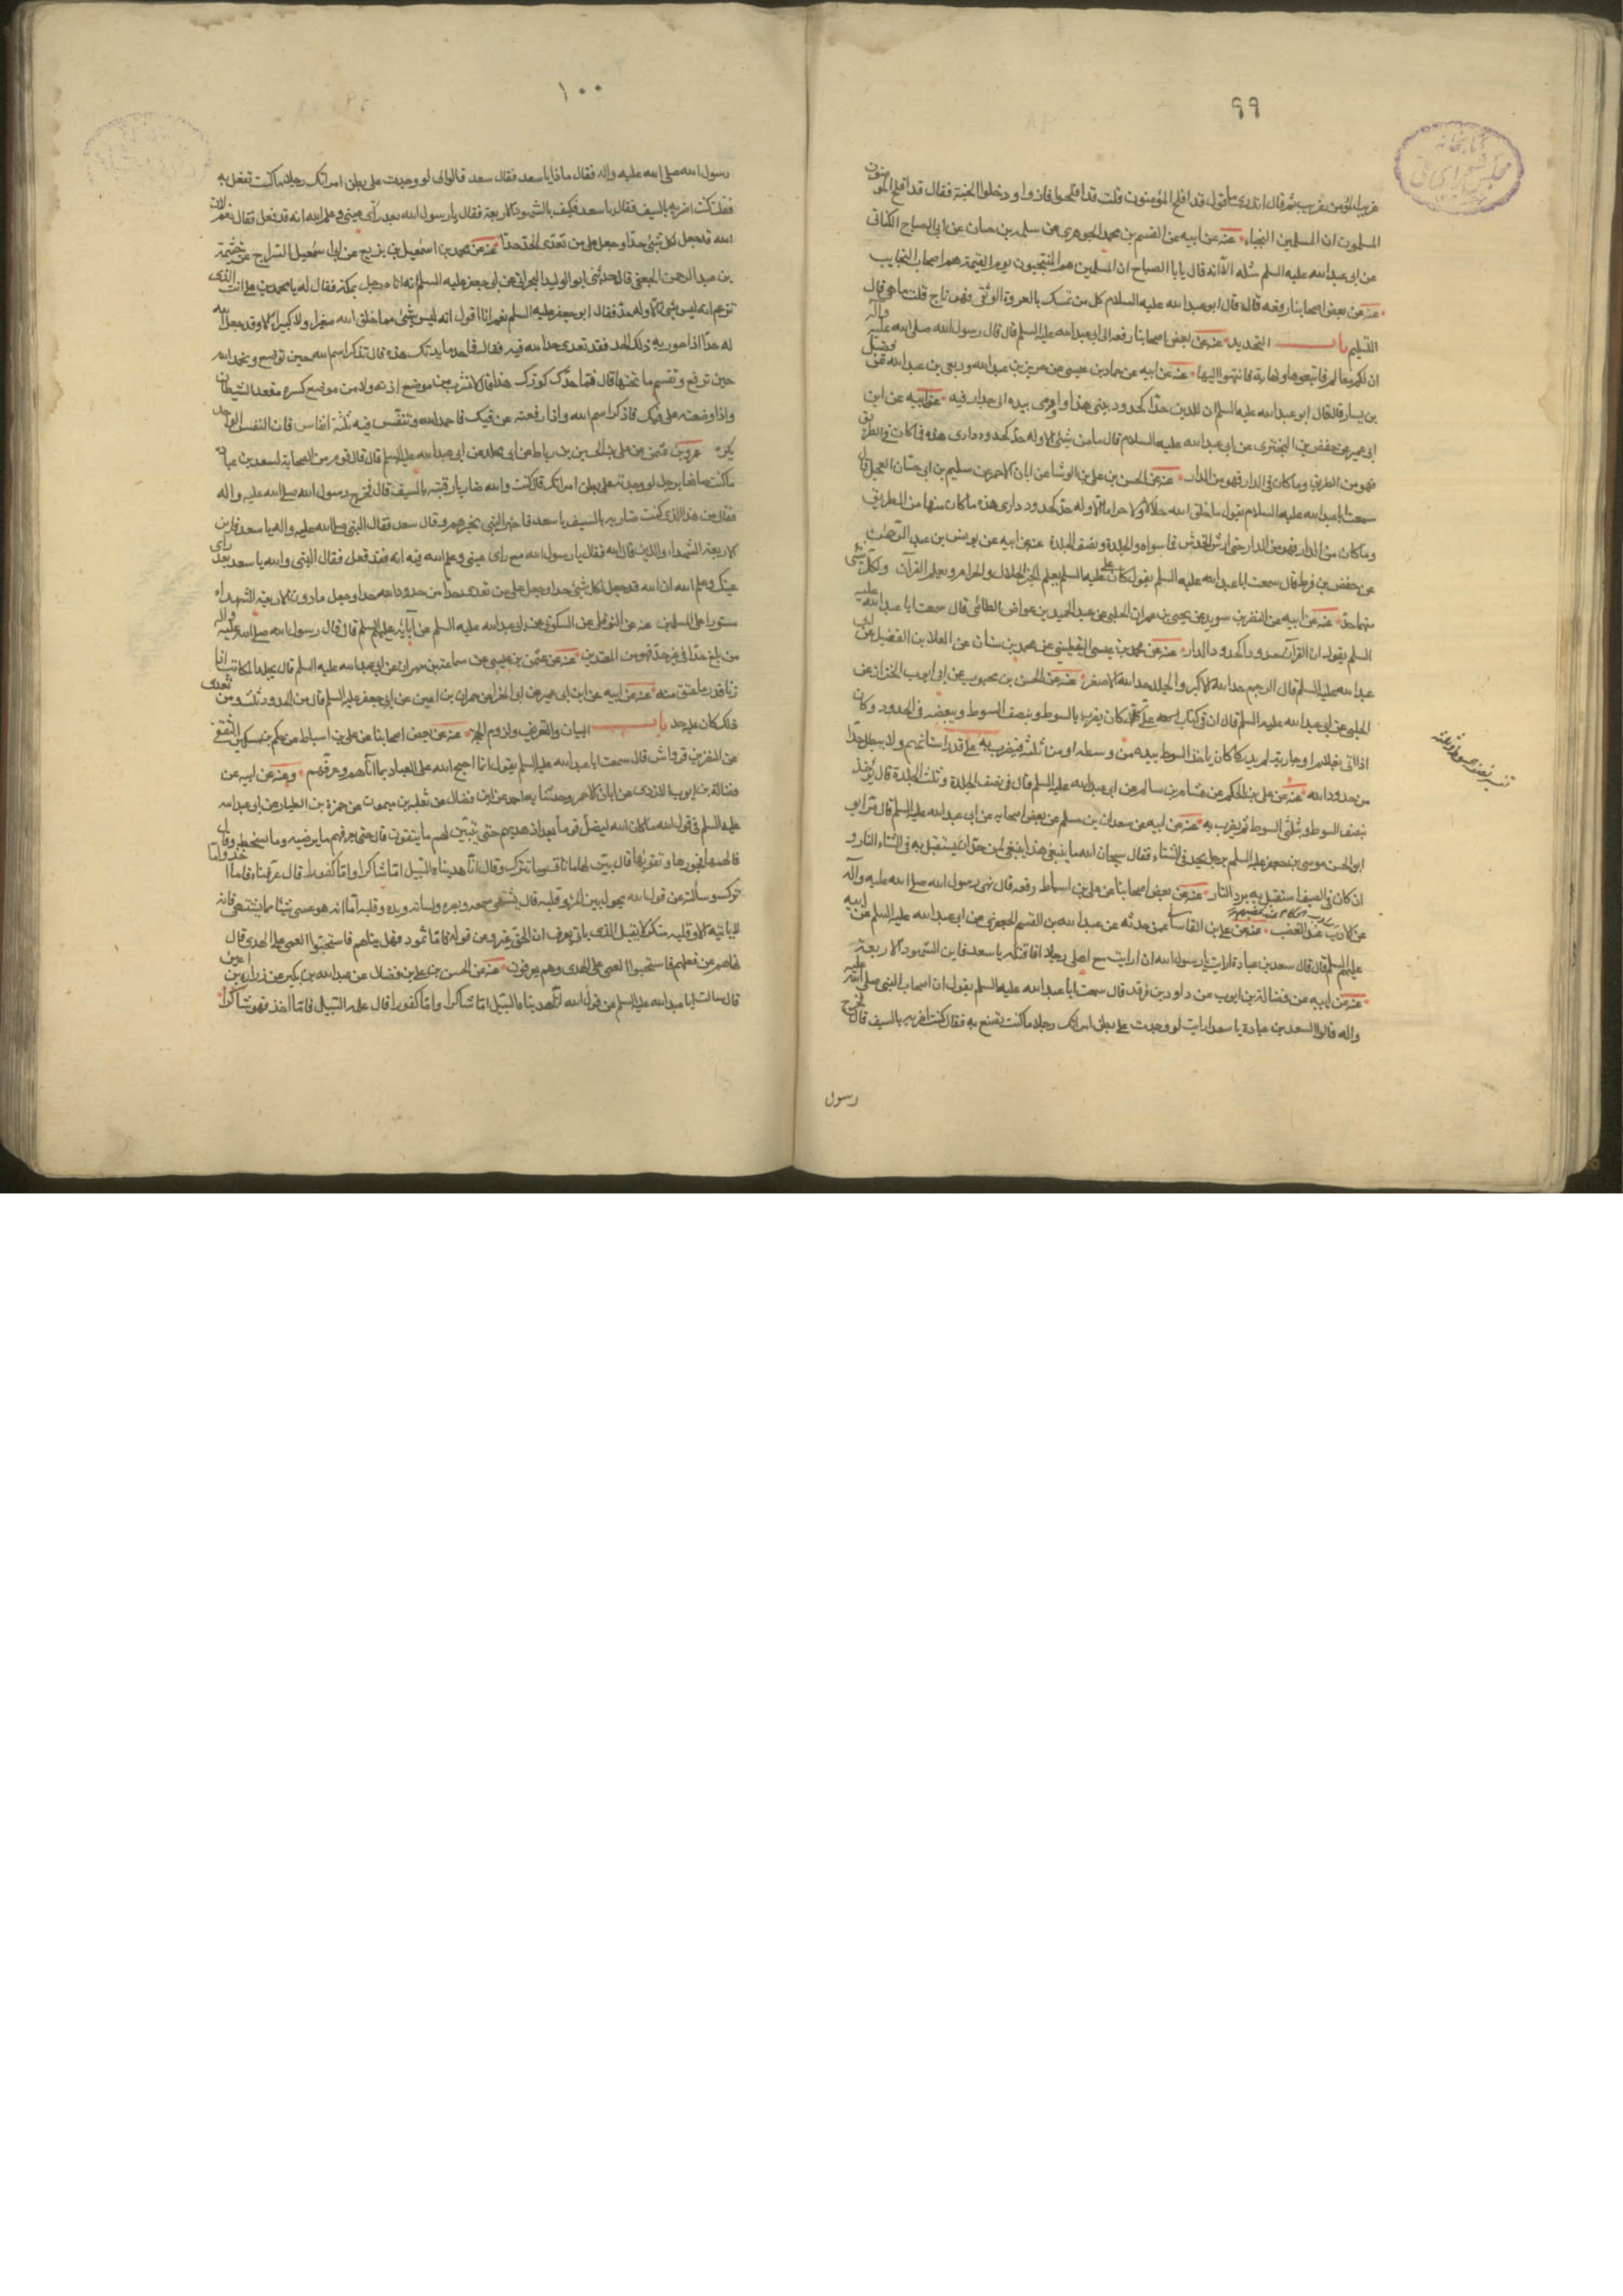 ٩٩
غريب المؤمن غريب ثم قال اتدرى ما قول قد افلح المؤمنون قلت قد افلحوا فازوا ودخلوا الجنة فقال قد افلح المؤمنون
المسلمون ان المسلمين النجباء عنه عن ابيه عن القسم بن محمد الجوهرى عن سلمة بن حيان عن ابى الصباح الكنانى
عن ابى عبد الله عليه السلم مثله الا انه قال يا ابا الصباح ان المسلمين هم المنتجبون يوم القيمة هم اصحاب النجايب
عنه عن بعض اصحابنا رفعه قال قال ابو عبد الله عليه السلام كل من تمسك بالعروة الوثقى فهو ناج قلت ما هى قال
التسليم باب التحديد عنه عن بعض اصحابنا رفعه الى ابى عبد الله عليه السلم قال قال رسول الله صلى الله عليه واله
ان لكم معالم فاتبعوها ونهاية فانتهوا اليها عنه عن ابيه عن حماد بن عيسى عن حريز بن عبد الله وربعى بن عبد الله عن فضيل
بن يسار قال قال ابو عبد الله عليه السلم ان للدين حدا كحدود بيتى هذا واومى بيده الى جدار فيه عنه عن ابيه عن ابن
ابى عمير عن حفص بن البخترى عن ابى عبد الله عليه السلام قال ما من شئ الا وله حد كحدود دارى هذه فما كان فى الطريق
فهو من الطريق وما كان فى الدار فهو من الدار عنه عن الحسن بن على الوشا عن ابان الاحمر عن سليم بن ابى حسان العجلى قال
سمعت ابا عبد الله عليه السلام يقول ما خلق الله حلالا ولا حراما الا وله حد كحدود دارى هذه ما كان منها من الطريق
وما كان من الدار فهو من الدار حتى ارش الخدش فما سواه والجلدة ونصف الجلدة عنه عن ابيه عن يونس بن عبد الرحمن
عن حفص بن قرط قال سمعت ابا عبد الله عليه السلم يقول كان على عليه السلم يعلم الخبر الحلال والحرام ويعلم القرآن ولكل شئ
منهما حد عنه عن ابيه عن النضر بن سويد عن يحيى بن عمران الحلبى عن عبد الحميد بن عواض الطائى قال سمعت ابا عبد الله عليه
السلم يقول ان للقرآن حدودا كحدود الدار عنه عن محمد بن عيسى اليقطينى عن محمد بن سنان عن العلا بن الفضيل عن ابى
عبد الله عليه السلم قال الرجم حد الله الاكبر والجلد حد الله الاصغر عنه عن الحسن بن محبوب عن ابى ايوب الخزاز عن
الحلبى عن ابى عبد الله عليه السلم قال ان فى كتاب على كان يضرب بالسوط وبنصف السوط وببعضه فى الحدود وكان
اذا اتى بغلام او جارية لم يدركا كان ياخذ السوط بيده من وسطه او من ثلثه فيضرب به على قدر اسنانهم ولا يبطل حدا
من حدود الله عنه عن على بن الحكم عن هشام بن سالم عن ابى عبد الله عليه السلم قال فى نصف الجلدة وثلث الجلدة قال يؤخذ
بنصف السوط وبثلثى السوط ثم يضرب به عنه عن ابيه عن سعدان بن مسلم عن بعض اصحابه عن ابى عبد الله عليه السلم قال مر ابو
ابو الحسن موسى بن جعفر عليه السلم برجل يحد فى الشتاء فقال سبحان الله ما ينبغى هذا ينبغى لمن حد ان يستقبل به فى الشتاء النار و
ان كان فى الصيف استقبل به برد النار عنه عن بعض اصحابنا عن على بن اسباط رفعه قال نهى رسول الله صلى الله عليه واله
عن الادب عند الغضب عنه عن على بن القاسانى عمن حدثه عن عبد الله بن القسم الجعفرى عن ابى عبد الله عليه السلم عن ابيه
عليهم السلم قال قال سعد بن عبادة ارايت يا رسول الله ان رايت مع اهلى رجلا افاقتله يا سعد فاين الشهود الاربعة
عنه عن ابيه عن فضالة بن ايوب عن داود بن فرقد قال سمعت ابا عبد الله عليه السلم يقول ان اصحاب النبى صلى الله عليه
واله قالوا لسعد بن عبادة يا سعد ارايت لو وجدت على بطن امراتك رجلا ما كنت تصنع به فقال كنت اضربه بالسيف قال فخرج
رسول
١٠٠
رسول الله صلى الله عليه واله فقال ماذا يا سعد فقال سعد قالوا لى لو وجدت على بطن امراتك رجلا ما كنت تفعل به
فقلت كنت اضربه بالسيف فقال يا سعد فكيف بالشهود الاربعة فقال يا رسول الله بعد رأى عينى وعلم الله انه قد فعل فقال نعم لان
الله قد جعل لكل شئ حدا وجعل على من تعدى الحد حدا عنه عن محمد بن اسمعيل بن بزيع عن ابى اسمعيل السراج عن خثيمة
بن عبد الرحمن الجعفى قال حدثنى ابو الوليد البحرانى عن ابى جعفر عليه السلم انه اتاه رجل بمكة فقال له يا محمد بن على انت الذى
تزعم انه ليس شئ الا وله حد فقال ابو جعفر عليه السلم نعم انا اقول انه ليس شئ مما خلق الله صغيرا ولا كبيرا الا وقد جعل الله
له حدا اذا جوز به ذلك الحد فقد تعدى حد الله فيه فقال فما حد مايدتك هذه قال تذكر اسم الله حين توضع وتحمد الله
حين ترفع وتقم ما تحتها قال فما حد كوزك هذا قال لا تشرب من موضع اذنه ولا من موضع كسره مقعد الشيطان
واذا وضعته على فيك فاذكر اسم الله واذا رفعته عن فيك فاحمد الله وتنفس فيه ثلثة انفاس فان النفس الواحد
يكره عمرو بن عثمن عن على بن الحسن بن رباط عن ابى مخلد عن ابى عبد الله عليه السلم قال قال قوم من الصحابة لسعد بن عبادة
ما كنت صانعا برجل لو وجدته على بطن امراتك قال كنت والله ضاربا رقبته بالسيف قال فخرج رسول الله صلى الله عليه واله
فقال من هذا الذى كنت ضاربه بالسيف يا سعد فاخبر النبى بخبرهم وقال سعد فقال النبى صلى الله عليه واله يا سعد فاين
الاربعة الشهداء والذين قال الله فقال يا رسول الله مع راى عينى وعلم الله فيه انه قد فعل فقال النبى والله يا سعد بعد راى
عينك وعلم الله ان الله قد جعل لكل شئ حدا وجعل على من تعدى حدا من حدود الله حدا وجعل ما دون الاربعة الشهداء
مستورا على المسلمين عنه عن النوفلى عن السكونى عن ابى عبد الله عليه السلم عن آبائه عليهم السلم قال قال رسول الله صلى الله عليه واله
من بلغ حدا فى غير حد فهو من المعتدين عنه عن عثمن بن عيسى عن سماعة بن مهران عن ابى عبد الله عليه السلم قال يجلد المكاتب اذا
زنا قدر ما عتق منه عنه عن ابيه عن ابن ابى عمير عن ابى المغرا عن حمران بن اعين عن ابى جعفر عليه السلم قال من الحدود ثلث ومن تعدى
ذلك كان عليه حد باب البيان والتعريف ولزوم الحجة عنه عن بعض اصحابنا عن على بن اسباط عن حكم بن مسكين الثقفى
عن النضر بن قرواش قال سمعت ابا عبد الله عليه السلم يقول انما احتج الله على العباد بما اتاهم وعرفهم وعنه عن ابيه عن
فضالة بن ايوب الازدى عن ابان الاحمر وحدثنا به احمد عن ابن فضال عن ثعلبة بن ميمون عن حمزة بن الطيار عن ابى عبد الله
عليه السلم فى قول الله ما كان الله ليضل قوما بعد اذ هديهم حتى يتبين لهم ما يتقون قال حتى يعرفهم ما يرضيه وما يسخطه وقال
فالهمها فجورها وتقويها قال بين لها ما تاتى وما تترك وقال انا هديناه السبيل اما شاكرا واما كفورا قال عرفناه فاما اخذ واما
ترك وسالته عن قول الله يحول بين المرؤ وقلبه قال يشتهى سمعه وبصره ولسانه ويده وقلبه اما انه هو عسى شيئا مما يشتهى فانه
لا ياتيه الا وقلبه منكر لا يقبل الذى ياتى يعرف ان الحق غيره وعن قوله فاما ثمود فهديناهم فاستحبوا العمى على الهدى قال
نهاهم عن فعلهم فاستحبوا العمى على الهدى وهم يعرفون عنه عن الحسن بن على بن فضال عن عبد الله بن بكير عن زرارة بن اعين
قال سالت ابا عبد الله عليه السلم عن قول الله انا هديناه السبيل اما شاكرا واما كفورا قال علمه السبيل فاما اخذ فهو شاكرا